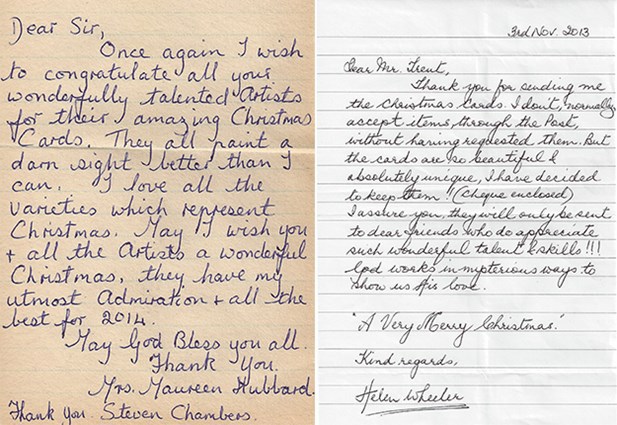 Dear Sir,
Once again I wish
to congratulate all your
wonderfully talented Artists
for their amazing Christmas
Cards. They all paint a
darn sight better than I
can. I love all the
varieties which represent
Christmas. May I wish you
+ all the Artists a wonderful
Christmas, they have my
utmost Admiration + all the
best for 2014.
May God Bless you all.
Thank You.
Mrs. Maureen Hubbard.
Thank you Steven Chambers.
3rd Nov. 2013
Dear Mr. Trent,
Thank you for sending me
the Christmas Cards. I don't, normally
accept items, through the Post,
without having requested them. But
the cards are so beautiful &
absolutely unique, I have decided
to keep them!! (Cheque enclosed)
I assure you, they will only be sent
to dear friends who do appreciate
such wonderful talent & skills!!!
God works in mysterious ways to
show us His love.
"A Very Merry Christmas."
Kind regards,
Helen Wheeler